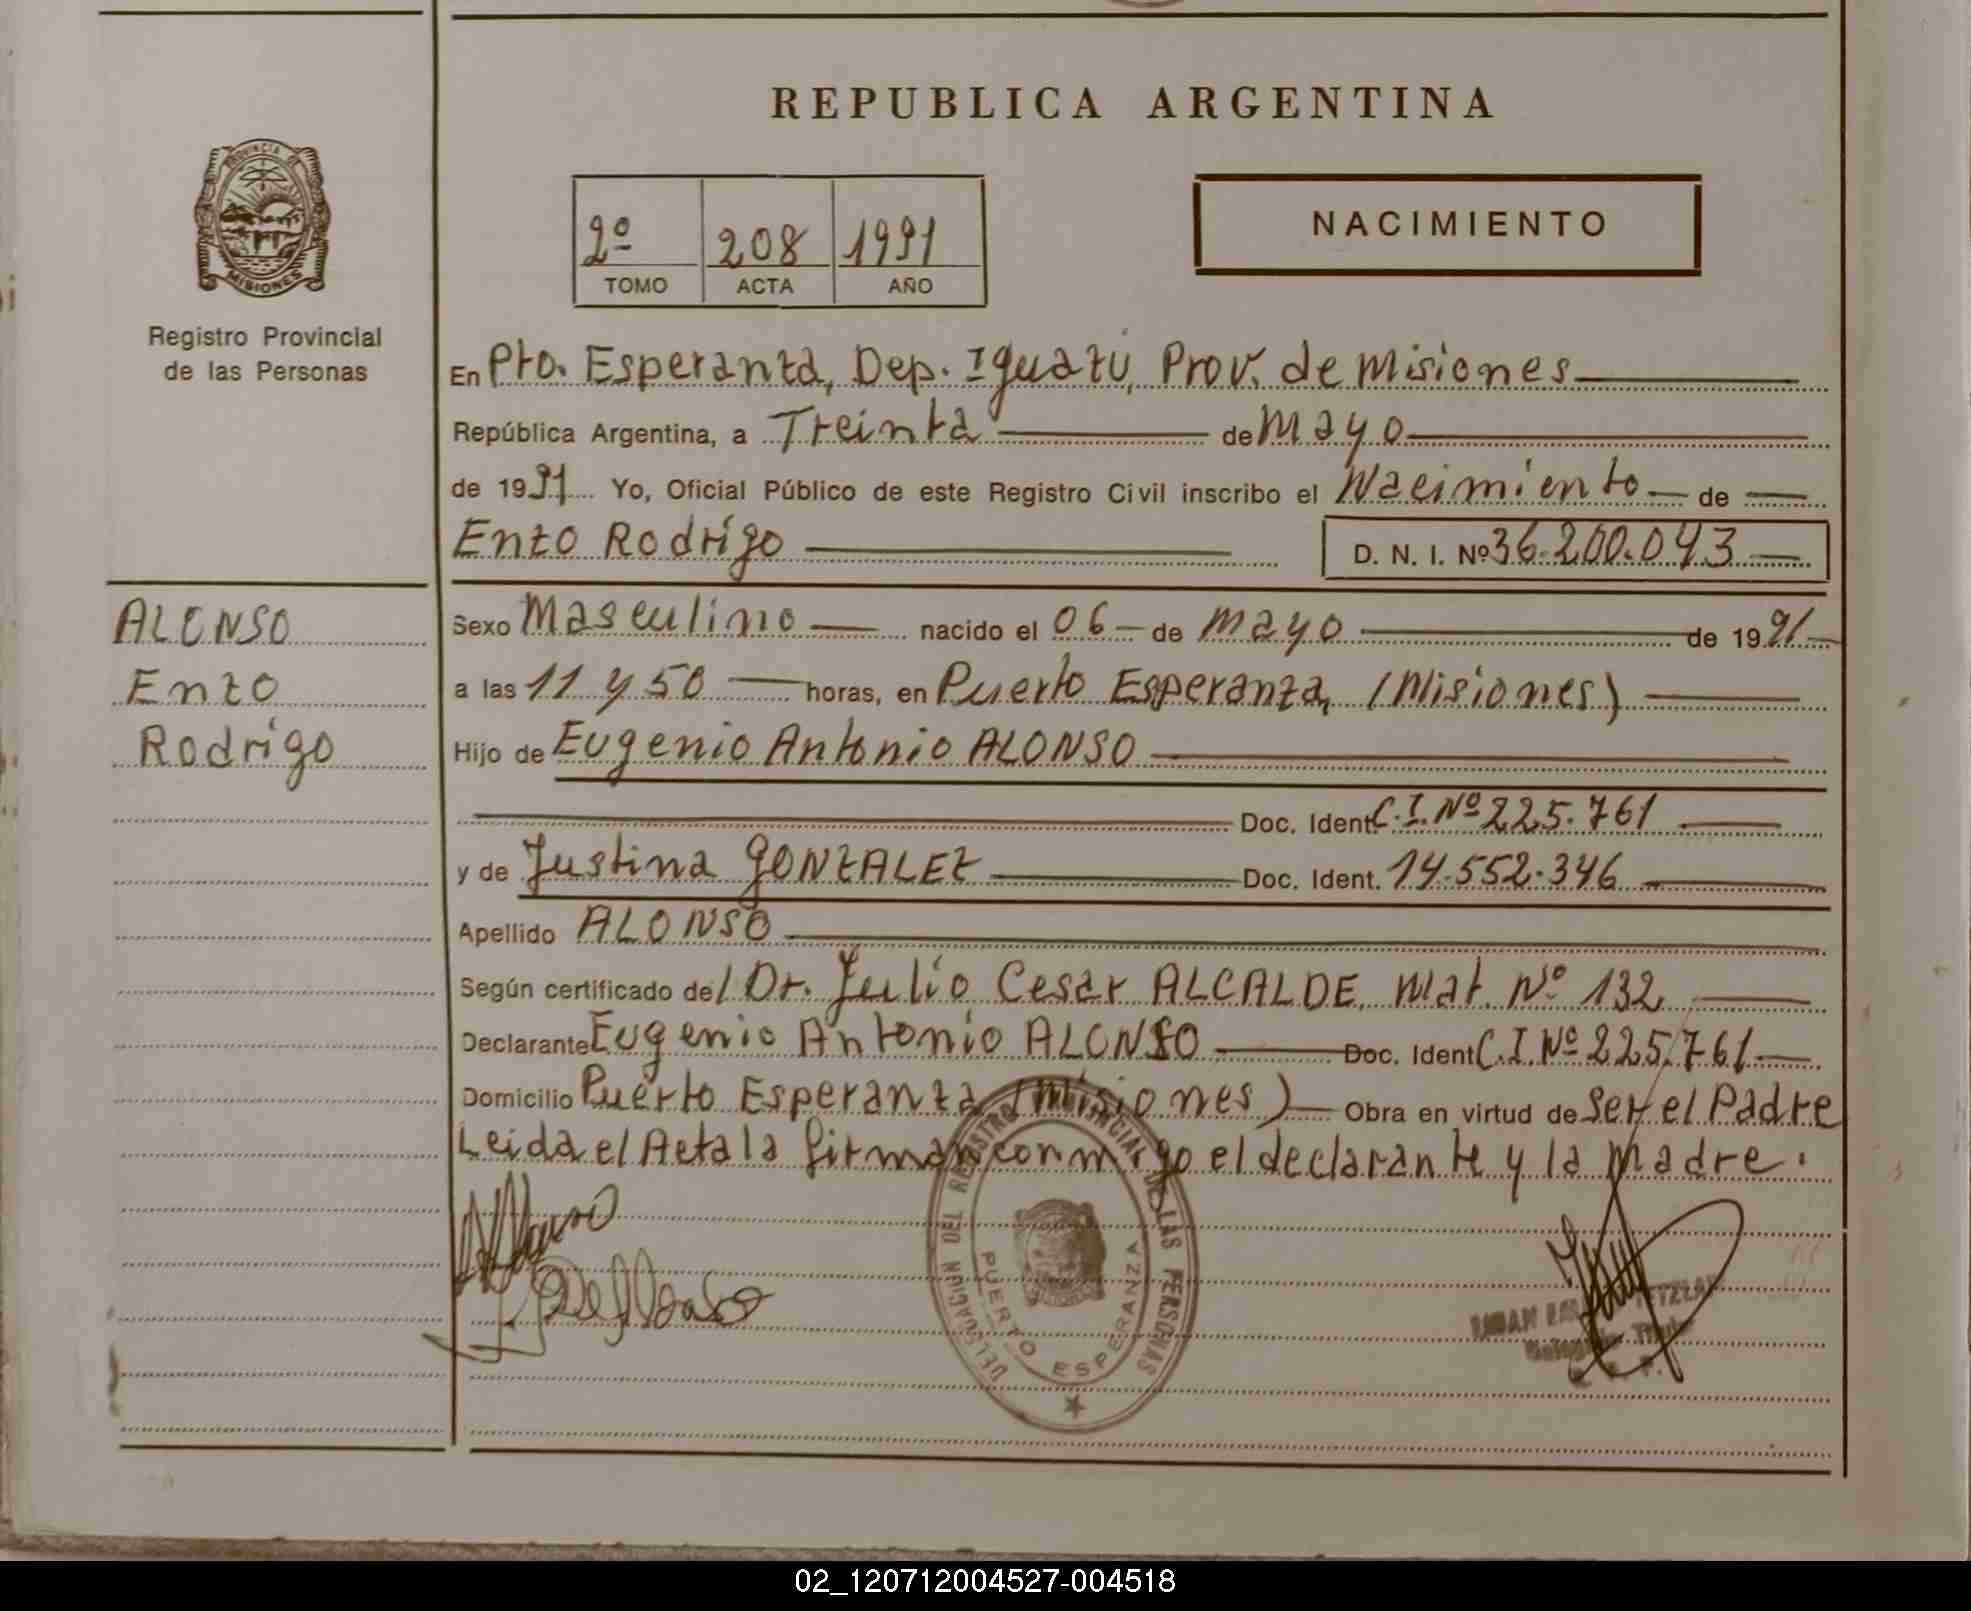 REPUBLICA ARGENTINA
PROVINCIA DE
MISIONES
Registro Provincial
de las Personas
2º 208 1991
TOMO ACTA AÑO
NACIMIENTO
En Pto. Esperanza, Dep. Iguazú, Prov. de Misiones
República Argentina, a Treinta de Mayo
de 1991 Yo, Oficial Público de este Registro Civil inscribo el Nacimiento de
Enzo Rodrigo D. N. I. Nº 36.200.043
ALONSO
Enzo
Rodrigo
Sexo Masculino nacido el 06 de Mayo de 1991
a las 11 y 50 horas, en Puerto Esperanza, (Misiones)
Hijo de Eugenio Antonio ALONSO
Doc. Ident. C.I. Nº 225.761
y de Justina GONZALEZ Doc. Ident. 14.552.346
Apellido ALONSO
Según certificado del Dr. Julio Cesar ALCALDE, Mat. Nº 132
Declarante Eugenio Antonio ALONSO Doc. Ident. C.I. Nº 225.761
Domicilio Puerto Esperanza (Misiones) Obra en virtud de Ser el Padre
Leida el Acta la firman conmigo el declarante y la Madre.
DELEGACION DEL REGISTRO PROVINCIAL DE LAS PERSONAS
PUERTO ESPERANZA
02_120712004527-004518